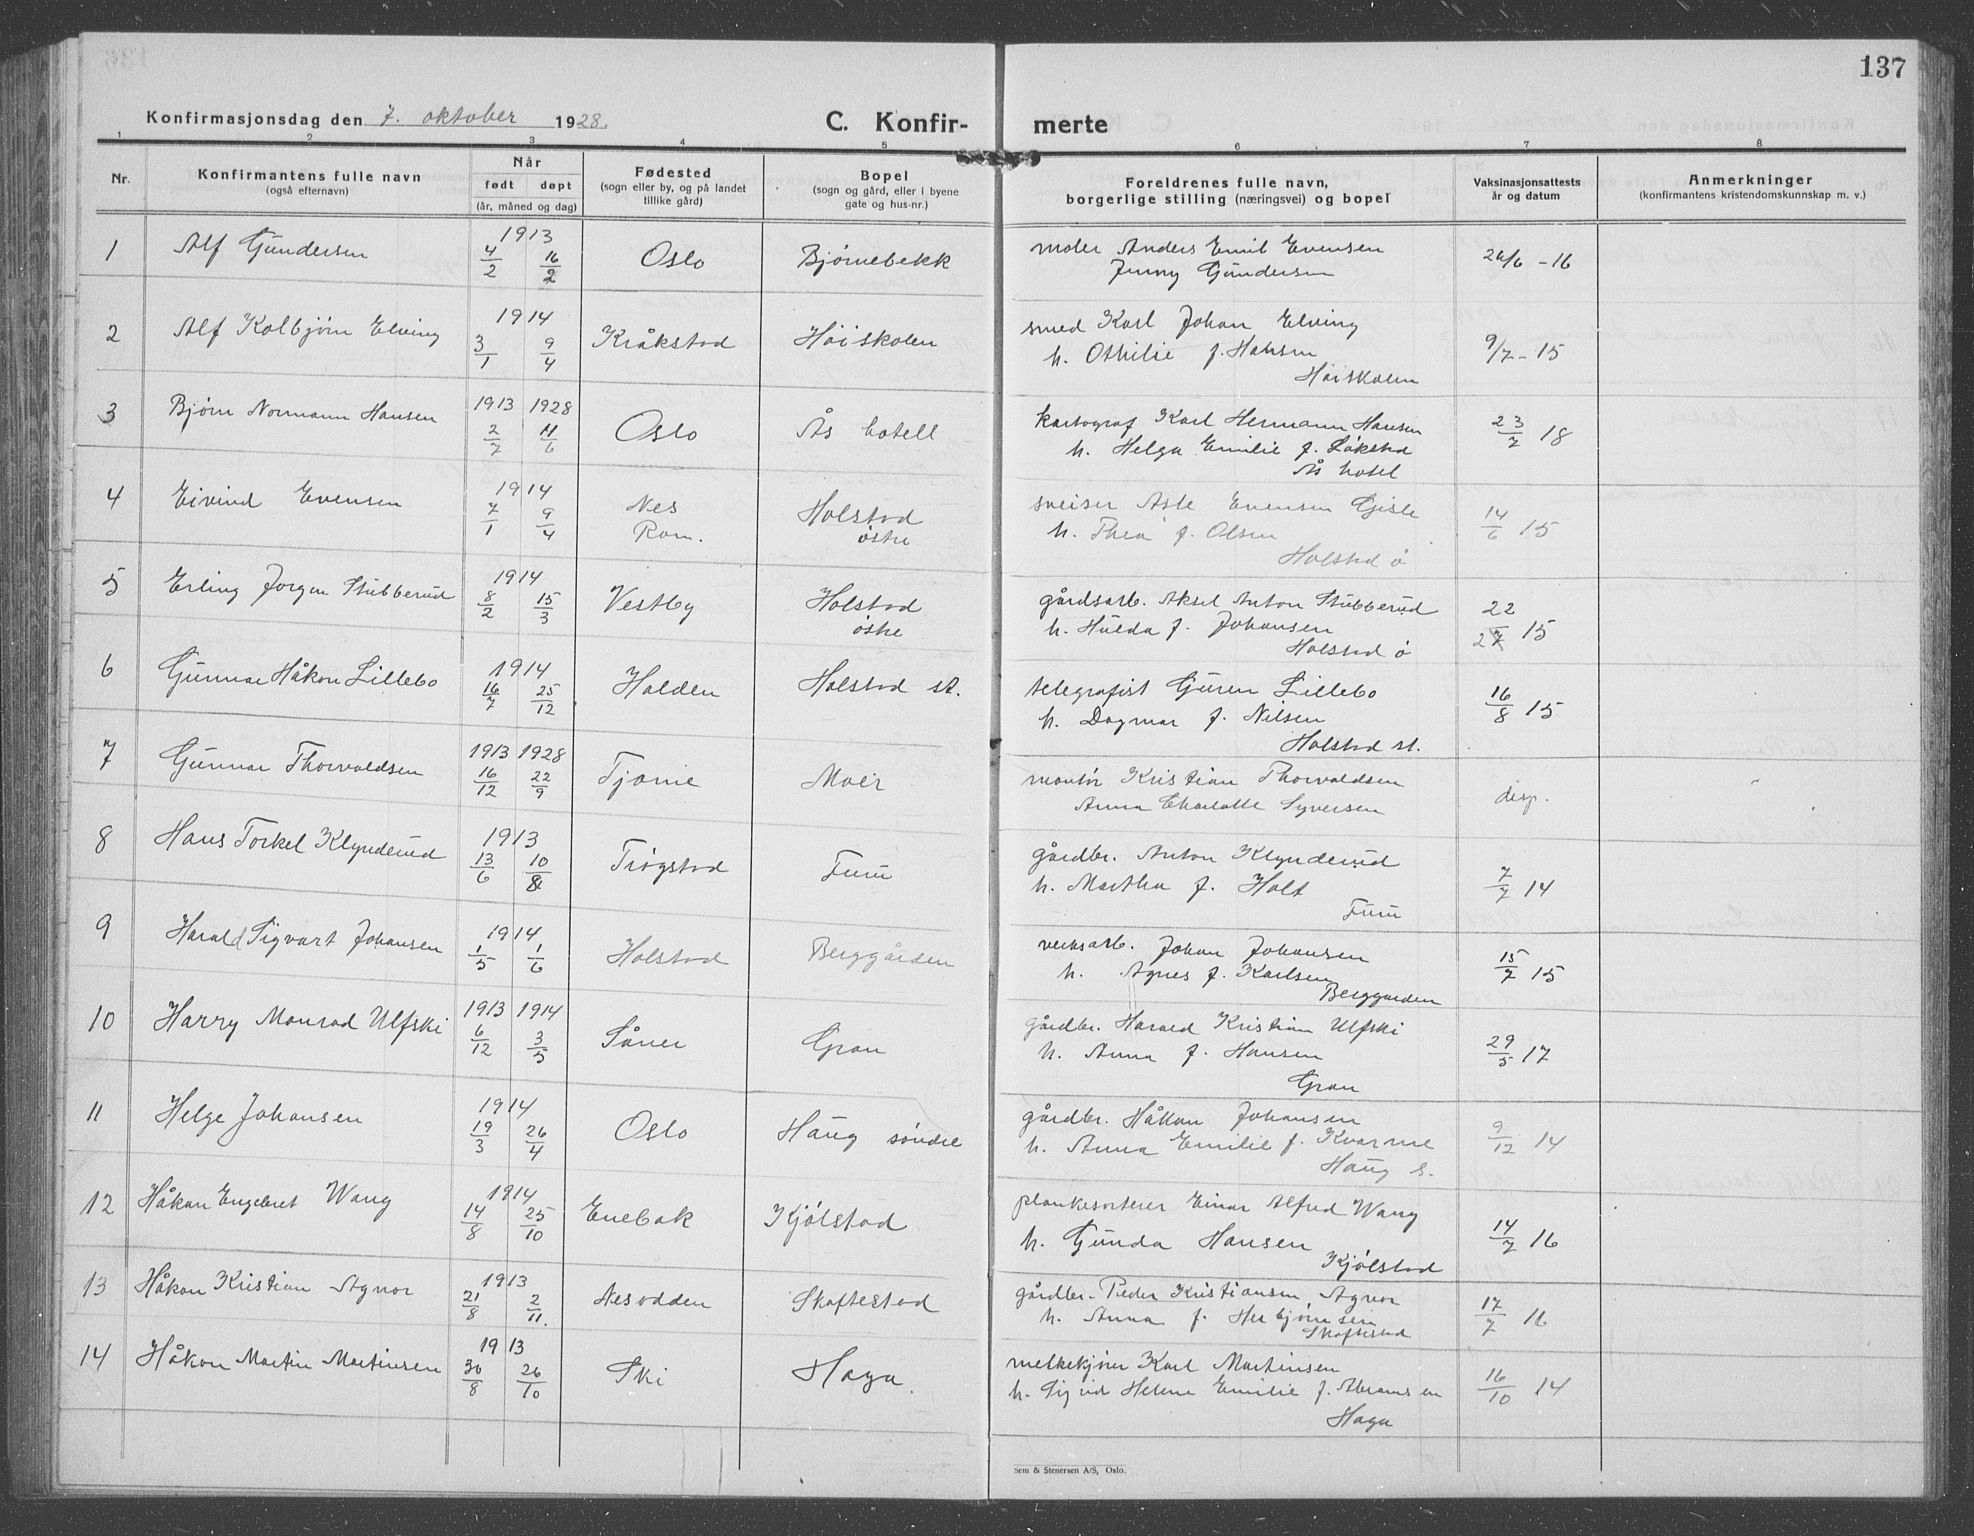 137
Konfirmasjonsdag den 7. oktober 1928.
C. Konfir-
merte
1 2 3 4 5 6 7 8
Nr.
Konfirmantens fulle navn
(også efternavn)
Når
født døpt
(år, måned og dag)
Fødested
(sogn eller by, og på landet
tillike gård)
Bopel
(sogn og gård, eller i byene
gate og hus-nr.)
Foreldrenes fulle navn,
borgerlige stilling (næringsvei) og bopel
Vaksinasjonsattests
år og datum
Anmerkninger
(konfirmantens kristendomskunnskap m. v.)
1 Alf Gundersen 1913 4/2 16/2 Oslo Bjørnebekk moler Anders Emil Evensen 26/6 -16
Jenny Gundersen
2 Alf Kolbjørn Elving 1914 3/1 9/4 Kråkstad Høiskolen smed Karl Johan Elving 9/7 - 15
h. Othilie f. Hansen
Høiskolen
3 Bjørn Normann Hansen 1913 1928 2/7 11/6 Oslo Ås hotell kartograf Karl Hermann Hansen 23/7 18
h. Helga Emilie f. Løkstad
Ås hotel
4 Eivind Evensen 1914 7/1 9/4 Nes Rom. Holstad østre sveiser Asle Evensen Gisle 14/6 15
h. Thea f. Olsen
Holstad ø
5 Erling Jørgen Stubberud 1914 8/2 15/3 Vestby Holstad østre gårdsarb. Aksel Anton Stubberud 22/27 15
h. Hulda f. Johansen
Holstad ø
6 Gunnar Håkon Lillebo 1914 16/7 25/12 Halden Holstad st. telegrafist Guren Lillebo 16/8 15
h. Dagmar f. Nilsen
Holstad st.
7 Gunnar Thorvaldsen 1913 1928 16/12 22/9 Tjøme Moer montør Kristian Thorvaldsen disp.
Anna Charlotte Syversen
8 Hans Torkel Klynderud 1913 13/6 10/8 Trøgstad Furu gårdbr. Anton Klynderud 7/7 14
h. Martha f. Holt
Furu
9 Harald Sigvart Johansen 1914 1/5 1/6 Holstad Berggården verksarb. Johan Johansen 15/7 15
h. Agnes f. Karlsen
Berggården
10 Harry Monrad Ulfski 1913 1914 6/12 3/5 Såner Gran gårdbr. Harald Kristian Ulfski 29/5 17
h. Anna f. Hansen
Gran
11 Helge Johansen 1914 19/3 26/4 Oslo Haug søndre gårdbr. Håkon Johansen 9/12 14
h. Anna Emilie f. Kvarme
Haug s.
12 Håkon Engebret Wang 1914 14/8 25/10 Enebak Kjølstad plankesorterer Einar Alfred Wang 14/7 16
h. Gunda Hansen
Kjølstad
13 Håkon Kristian Agnor 1913 21/8 2/11. Nesodden Skaftestad gårdbr. Peder Kristiansen Agnor 17/7 16
h. Anna f. Herbjørnsen
Skaftestad
14 Håkon Martin Martinsen 1913 30/8 26/10 Ski Haga. melkekjører Karl Martinsen 16/10 14
h. Sigrid Helene Emilie f. Abramsen
Haga
Sem & Stenersen A/S, Oslo.